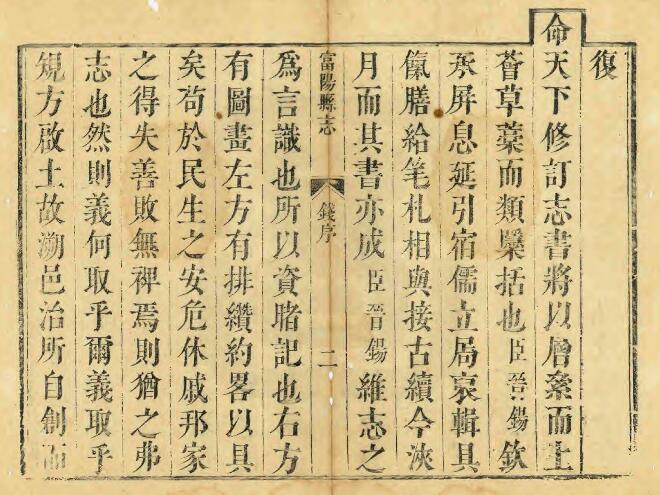 復
命天下修訂志書將以層絫而上
薈草藁而類櫽括也臣晉錫欽
承屏息延引宿儒立局裒輯具
膳給笔札相與接古續今浹
月而其書亦成臣晉錫維志之
富陽縣志 錢序 二
爲言識也所以資睹記也右方
有圖畫左方有排纘約畧以具
矣茍於民生之安危休戚邦家
之得失善敗無裨焉則猶之弗
志也然則義何取乎爾義取乎
規方啟土故溯邑治所自創而